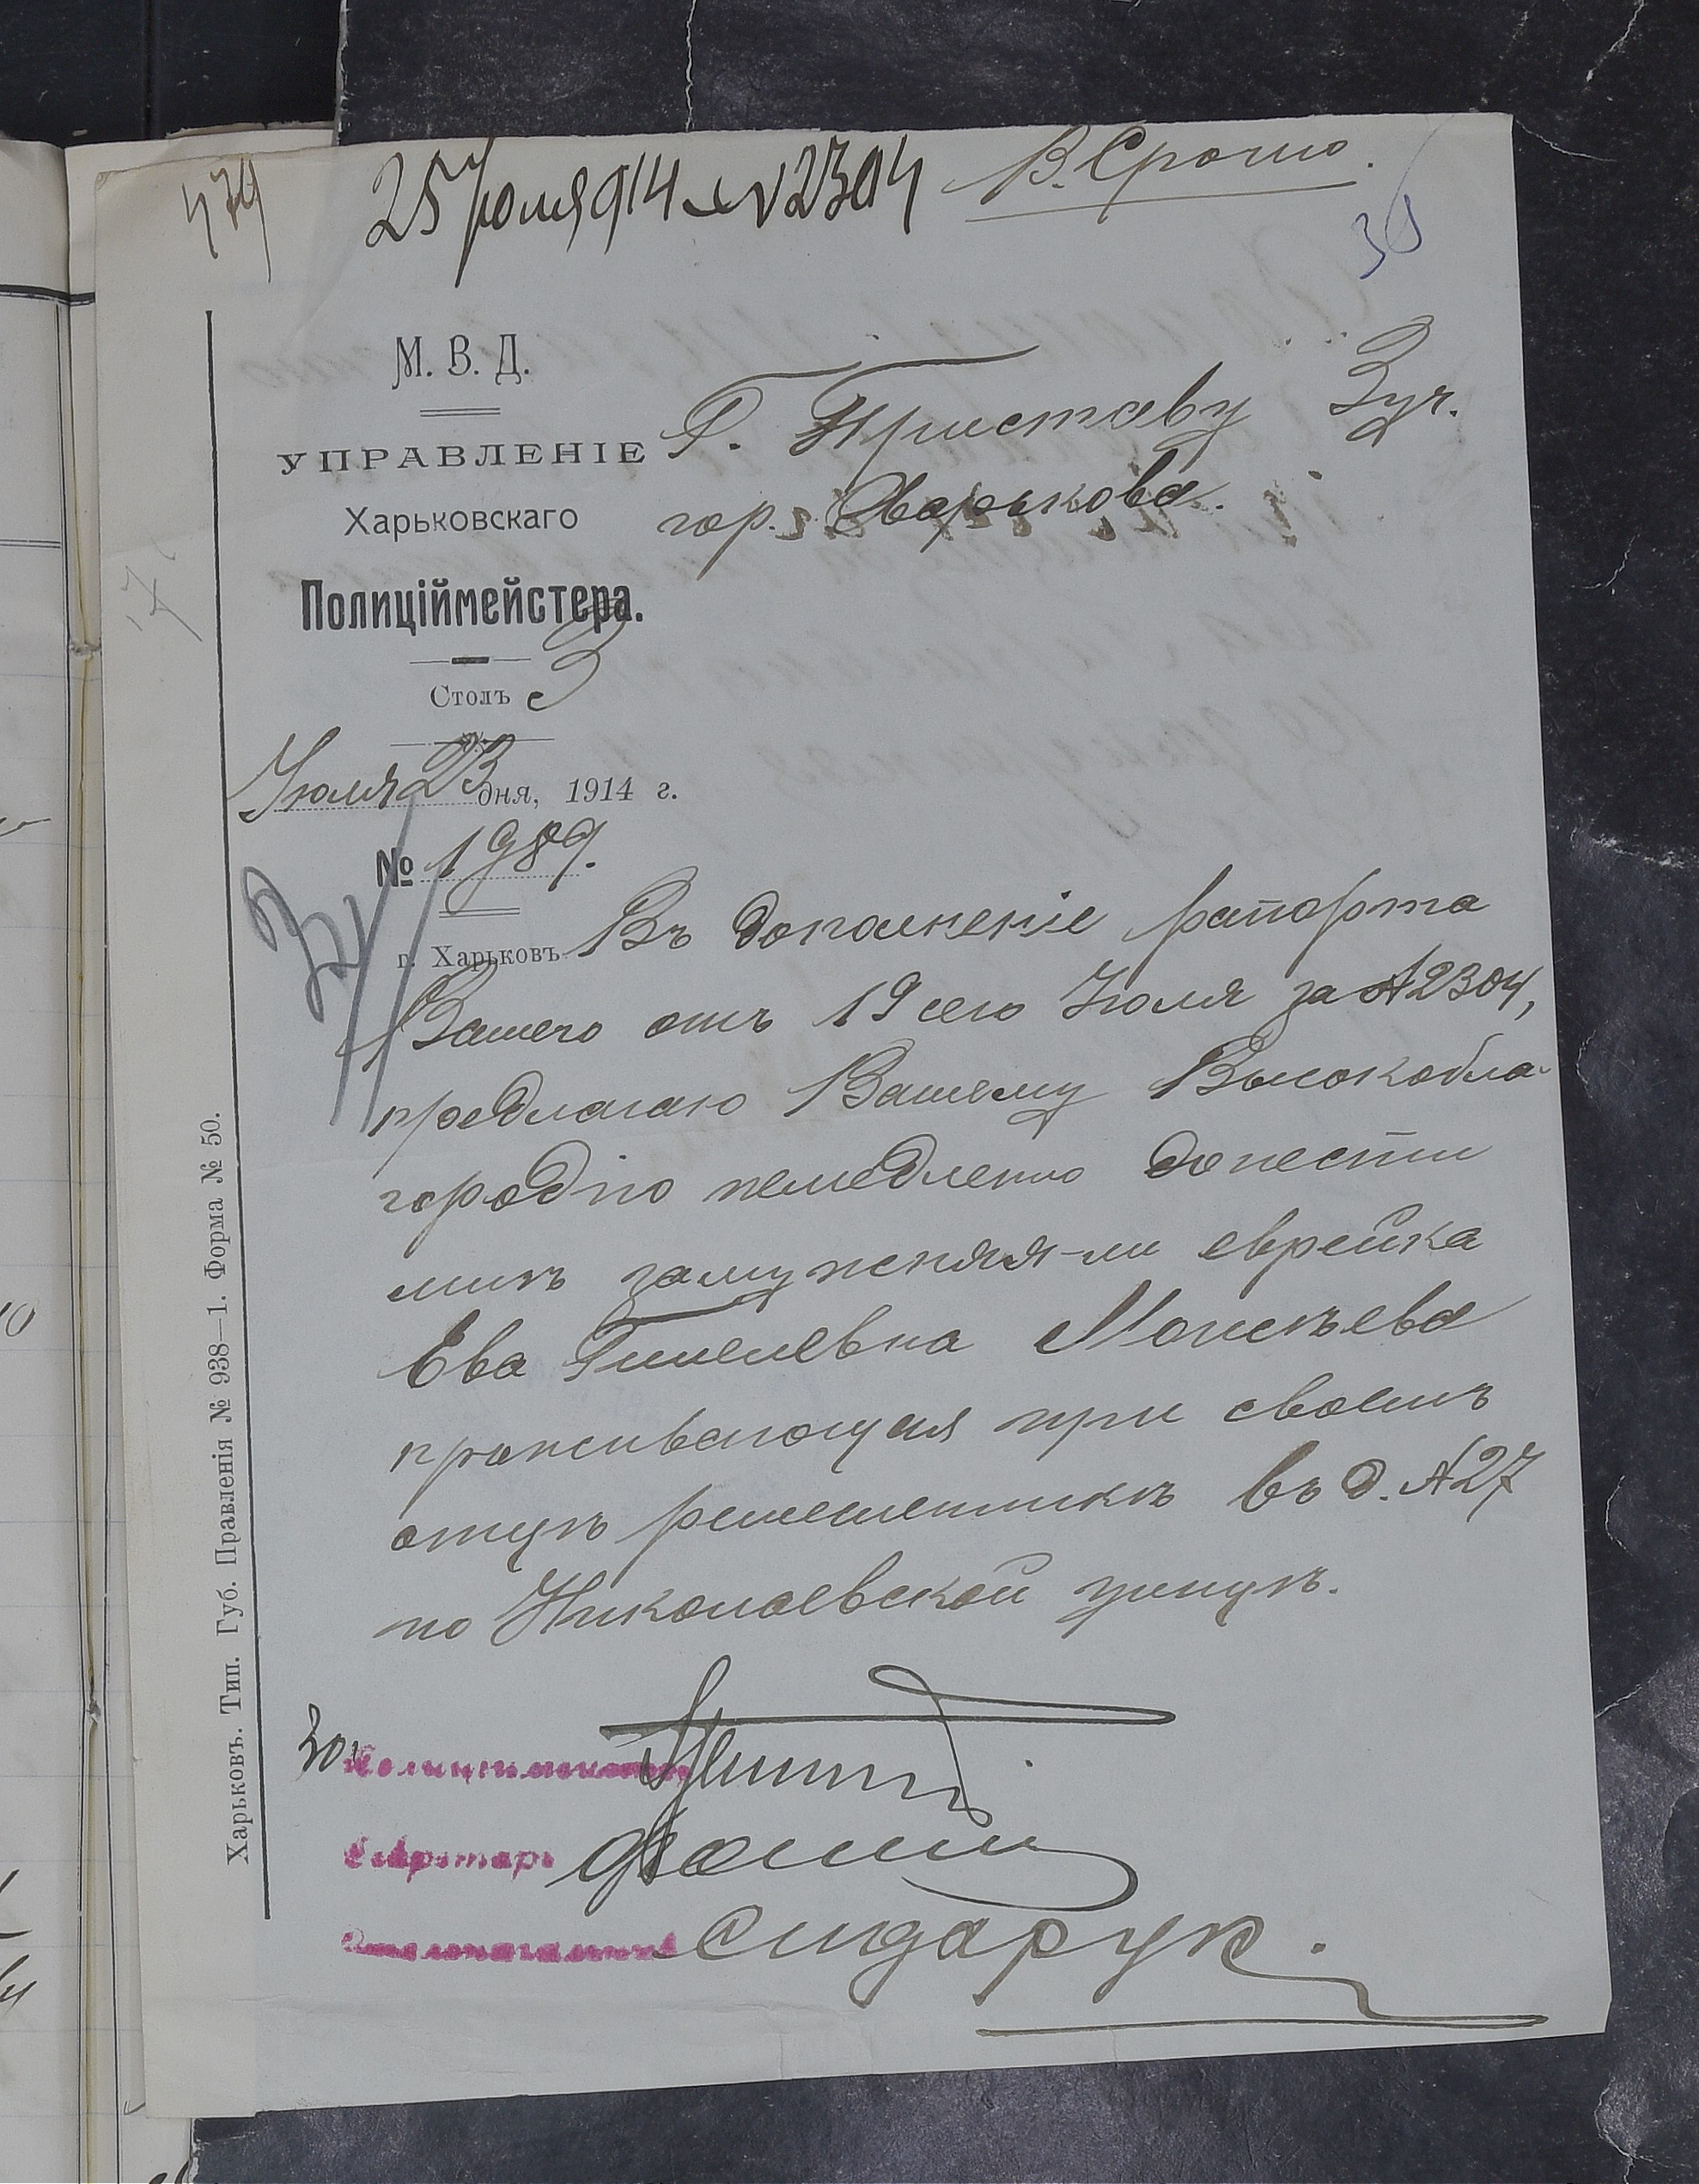 479
25 Юля 914 № 2304
В. Срочно.
38
М. В. Д.
УПРАВЛЕНІЕ
Харьковскаго
Полиціймейстера.
Столъ 3
Г. Приставу 3 уч.
гор. Харькова.
Іюля 23 дня, 1914 г.
№ 1989.
г. Харьковъ
Въ дополненіе рапорта
Вашего отъ 19 сего Іюля за №2304,
предлагаю Вашему Высокобла-
городію немедленно донести
мнѣ замужняя-ли еврейка
Ева Гилелевна Моисѣева
проживающая при своемъ
отцѣ ремесленникѣ въ д. №27
по Николаевской улицѣ.
Полиціймейстеръ
Секретарь
Столоначальникъ Сидарук.
Харьковъ. Тип. Губ. Правленія № 938—1. Форма № 50.